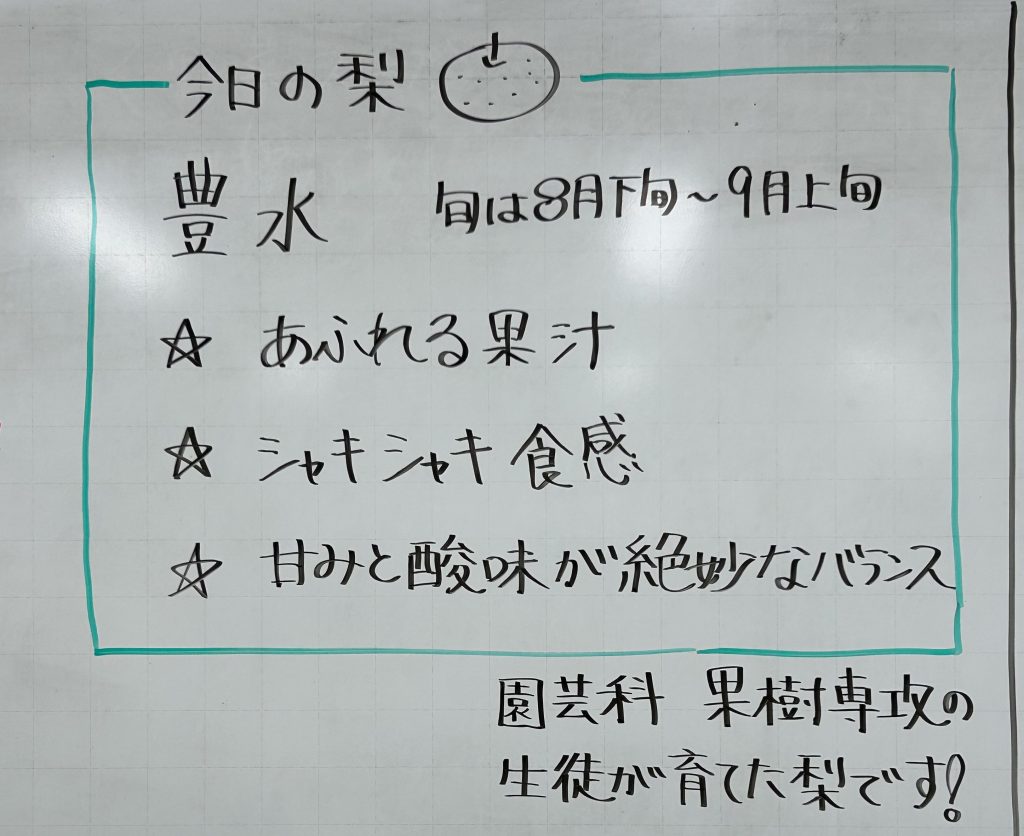 今日の梨
豊水 旬は8月下旬~9月上旬
☆ あふれる果汁
☆ シャキシャキ食感
☆ 甘みと酸味が絶妙なバランス
園芸科 果樹専攻の
生徒が育てた梨です!